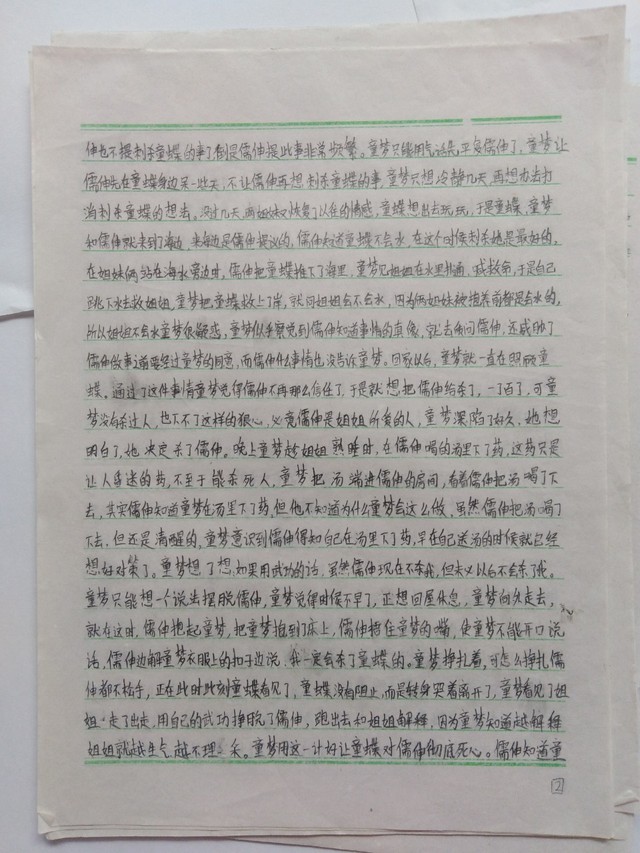 仲也不提刺杀童蝶的事了倒是儒仲提此事非常频繁。童梦只能用气话是平复儒仲了，童梦让
儒仲先在童蝶身边呆一些天，不让儒仲再想刺杀童蝶的事，童梦只想冷静几天，再想办法打
消刺杀童蝶的想法。没过几天，两姐妹又恢复了以往的情感，童蝶想出去玩玩，于是童蝶、童梦
和儒仲就来到了海边，来海边是儒仲提议的，儒仲知道童蝶不会水，在这个时候刺杀她是最好的，
在姐妹俩站在海水旁边时，儒仲把童蝶推下了海里，童梦见姐姐在水里扑通，喊救命，于是自己
跳下水去救姐姐，童梦把童蝶救上了岸，就问姐姐会不会水，因为俩姐妹被抱养前都是会水的，
所以姐姐不会水童梦很疑惑，童梦似乎察觉到儒仲知道事情的真像，就去质问儒仲，还威胁了
儒仲做事之前要经过童梦的同意，而儒仲什么事情也没告诉童梦。回家以后，童梦就一直在照顾童
蝶。通过了这件事情童梦觉得儒仲不再那么信任了，于是就想把儒仲给杀了，一了百了，可童
梦没有杀过人，也下不了这样的狠心，必竟儒仲是姐姐所爱的人，童梦深陷了好久，她想
明白了，她决定杀了儒仲。晚上童梦趁姐姐熟睡时，在儒仲喝的汤里下了药，这药只是
让人昏迷的药，不至于能杀死人，童梦把汤端进儒仲的房间，看着儒仲把汤喝了下
去，其实儒仲知道童梦在汤里下了药，但他不知道为什么童梦会这么做，虽然儒仲把汤喝了
下去，但还是清醒的，童梦意识到儒仲得知自己在汤里下了药，早在自己送汤的时候就已经
想好对策了。童梦想了想，如果用武功的话，虽然儒仲现在不杀我，但未必以后不会杀了我。
童梦只能想一个说出摆脱儒仲，童梦觉得时候不早了，正想回屋休息，童梦向外走去，
就在这时，儒仲抱起童梦，把童梦抱到了床上，儒仲捂住童梦的嘴，使童梦不能开口说
话，儒仲边解童梦衣服上的扣子边说，我一定会杀了童蝶的。童梦挣扎着，可怎么挣扎儒
仲都不松手，正在此时此刻童蝶看见了，童蝶没有阻止，而是转身哭着离开了，童梦看见了姐
姐走了出去，用自己的武功挣脱了儒仲，跑出去和姐姐解释，因为童梦知道越解释
姐姐就越生气越不理 童梦用这一计好让童蝶对儒仲彻底死心。儒仲知道童
2